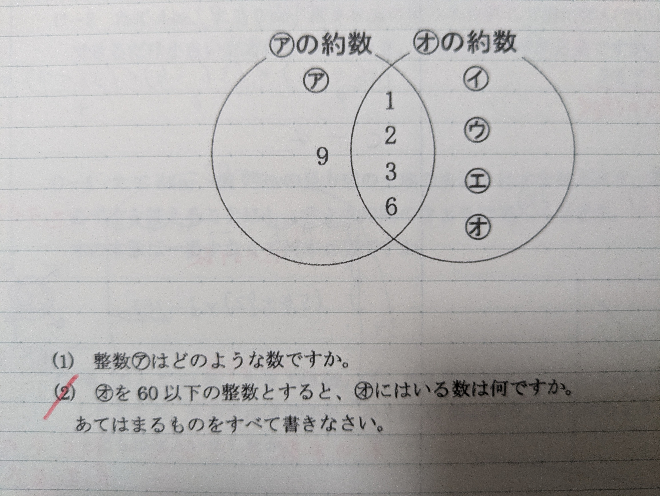 ㋐の約数 ㋔の約数
㋐ ㋑
1
2 ㋒
9
3 ㋓
6 ㋔
(1) 整数㋐はどのような数ですか。
(2) ㋔を60以下の整数とすると、㋔にはいる数は何ですか。
あてはまるものをすべて書きなさい。